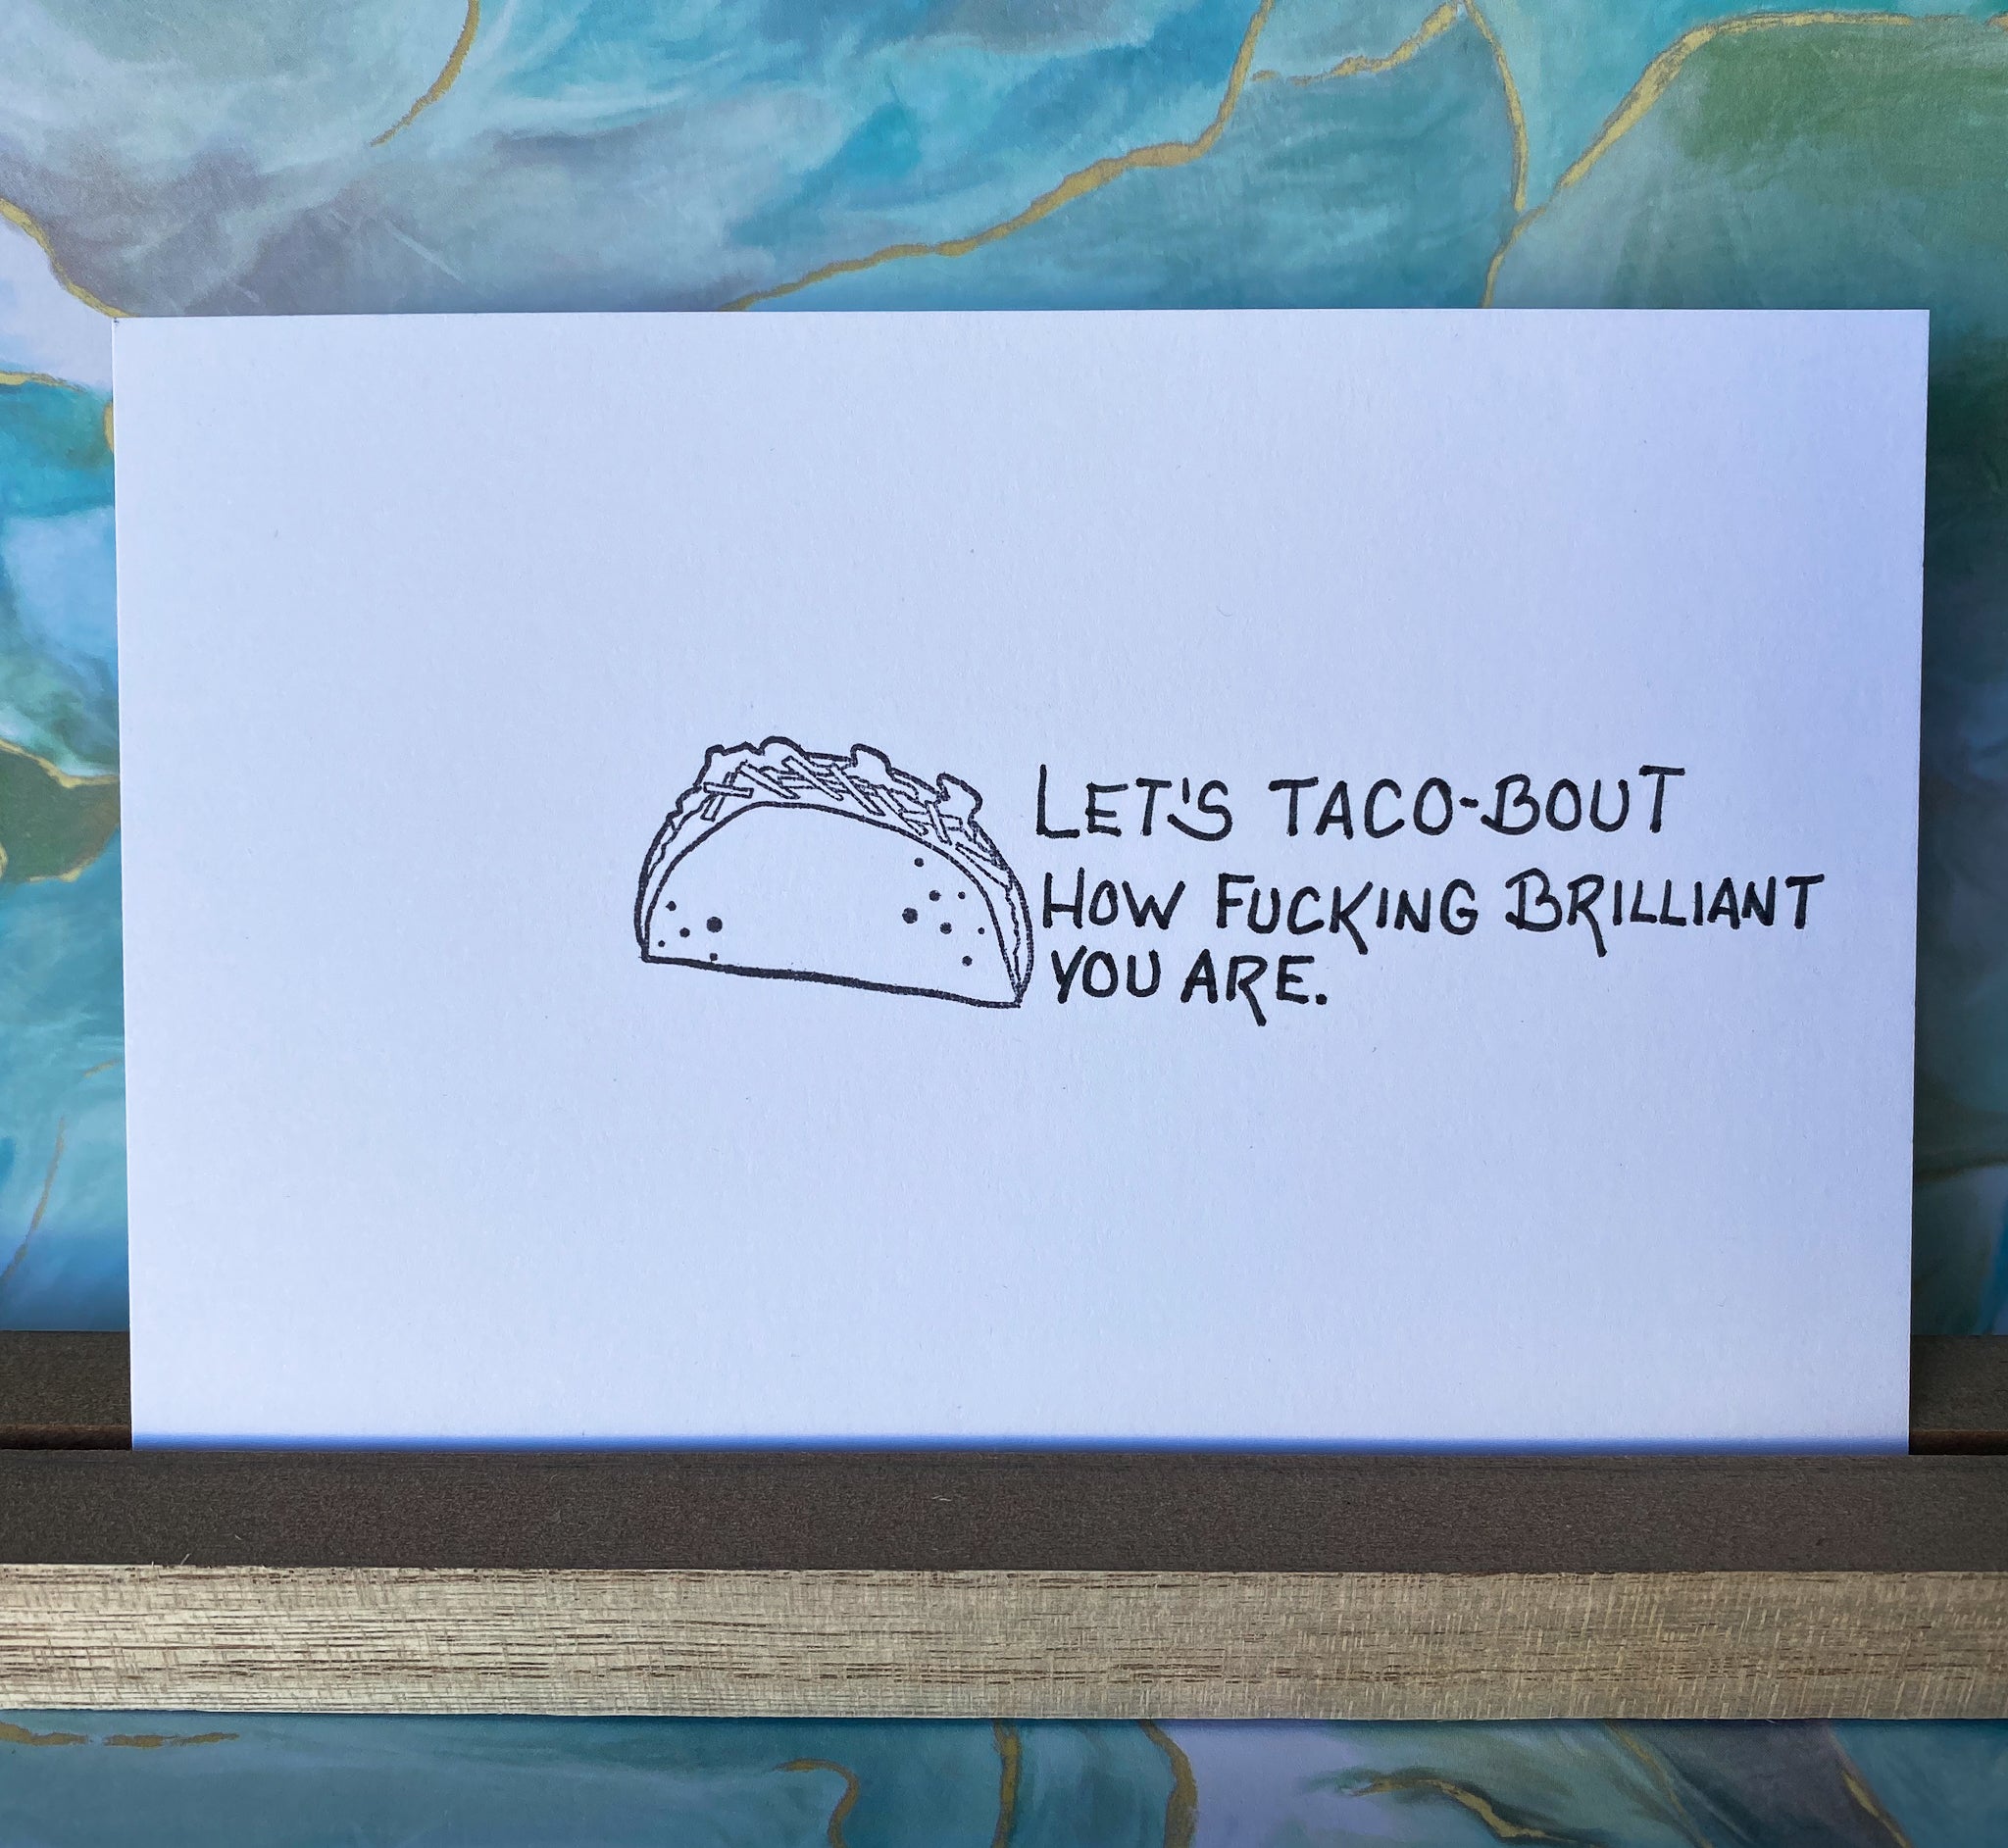 LET'S TACO-BOUT
HOW FUCKING BRILLIANT
YOU ARE.